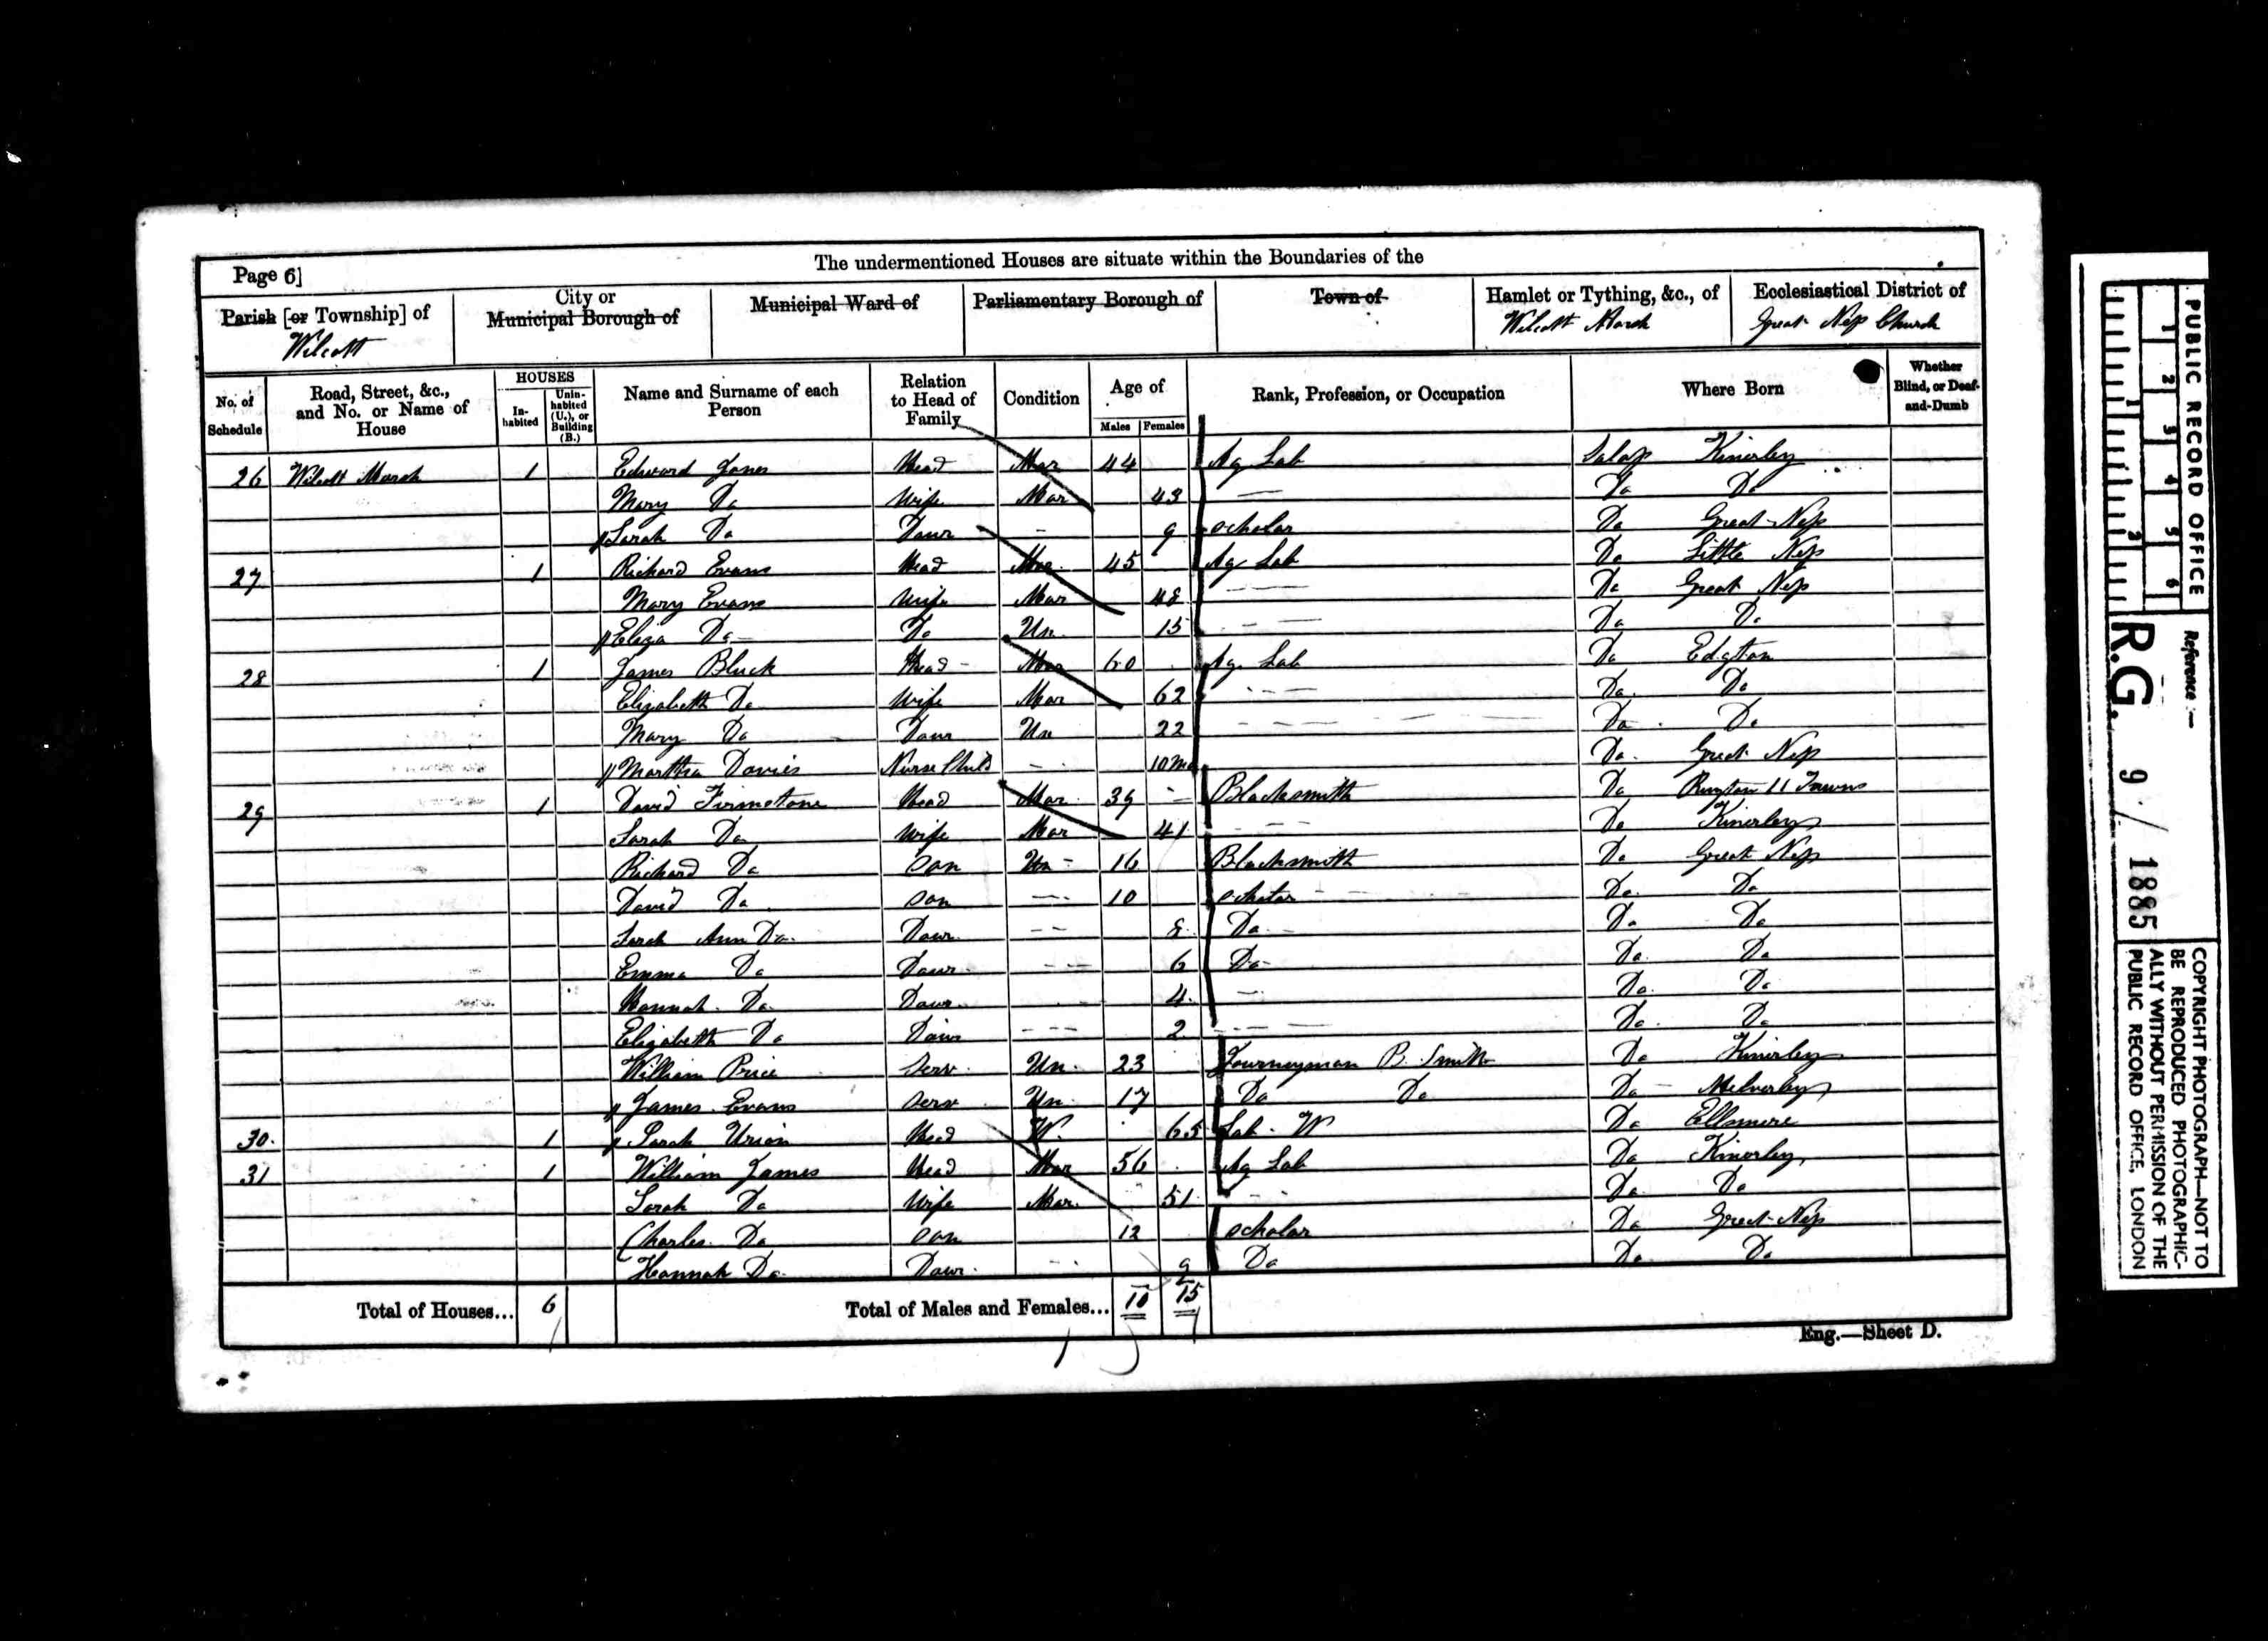 The undermentioned Houses are situate within the Boundaries of the
Page 6]
Parish [or Township] of
Wilcott
City or
Municipal Borough of
Municipal Ward of
Parliamentary Borough of
Town of
Hamlet or Tything, &c., of
Wilcott Marsh
Ecclesiastical District of
Great Nep Church
No. of Schedule
Road, Street, &c., and No. or Name of House
HOUSES
Inhabited
Uninhabited (U.), or Building (B.)
Name and Surname of each Person
Relation to Head of Family
Condition
Age of
Males
Females
Rank, Profession, or Occupation
Where Born
Whether Blind, or Deaf-and-Dumb
26 Wilcott Marsh 1 Edward Jones Head Mar 44 Ag Lab Salop Kinerley
Mary Do Wife Mar 43 — Do Do
Sarah Do Daur - 9 Scholar Do Great Nep
27 1 Richard Evans Head Mar 45 Ag Lab Do Little Nep
Mary Evans Wife Mar 48 Do Great Nep
Eliza Do Do Un 15 Do Do
28 1 James Bluck Head Mar 60 Ag. Lab Do Edgton
Elizabeth Do Wife Mar 62 Do Do
Mary Do Daur Un 22 Do Do
Marttha Davies Nurse Child 10 Mo Do Great Nep
29 1 David Firmstone Head Mar 39 Blacksmith Do Ruyton 11 Towns
Sarah Do Wife Mar 41 Do Kinerley
Richard Do Son Un 16 Blacksmith Do Great Nep
David Do Son 10 Scholar Do Do
Sarah Ann Do Daur 8 Do Do Do
Emma Do Daur 6 Do Do Do
Hannah Do Daur 4 Do Do
Elizabeth Do Daur 2 Do Do
William Price Serv Un 23 Journeyman B. Smith Do Kinerley
James Evans Serv Un 17 Do Do Do Melverley
30 1 Sarah Urion Head W. 65 Lab. W Do Ellsmere
31 1 William James Head Mar 56 Ag Lab Do Kinerley
Sarah Do Wife Mar 51 Do Do
Charles Do Son 12 Scholar Do Great Nep
Hannah Do Daur 9 Do Do Do
Total of Houses... 6
Total of Males and Females... 10 15
Eng.—Sheet D.
PUBLIC RECORD OFFICE
1 2 3 4 5 6
1 2
Reference :—
R.G. 9 / 1885
COPYRIGHT PHOTOGRAPH—NOT TO
BE REPRODUCED PHOTOGRAPHIC-
ALLY WITHOUT PERMISSION OF THE
PUBLIC RECORD OFFICE, LONDON